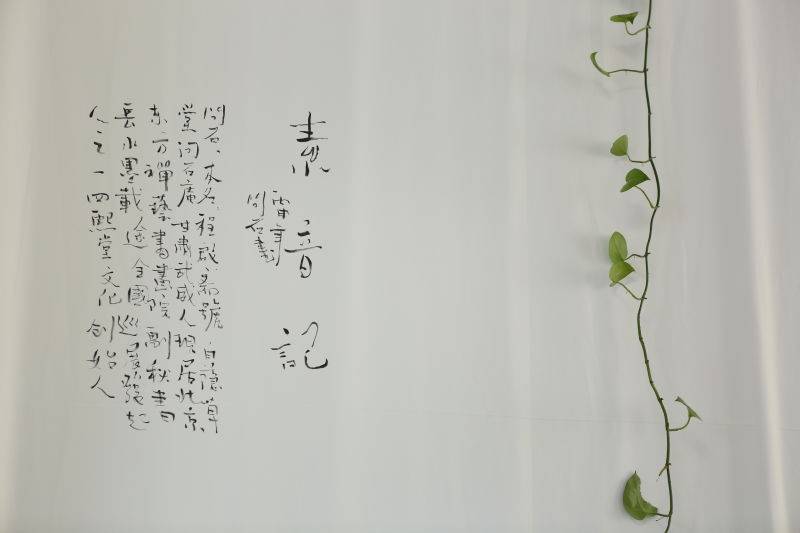 素音記
問石書
問石,本名程啟,齋號自隱草
堂問石庵甘肅武威人現居北京
东方禪藝書畫院副秘書
長水墨載途全國巡展發起
人之一四熙堂文化創始人